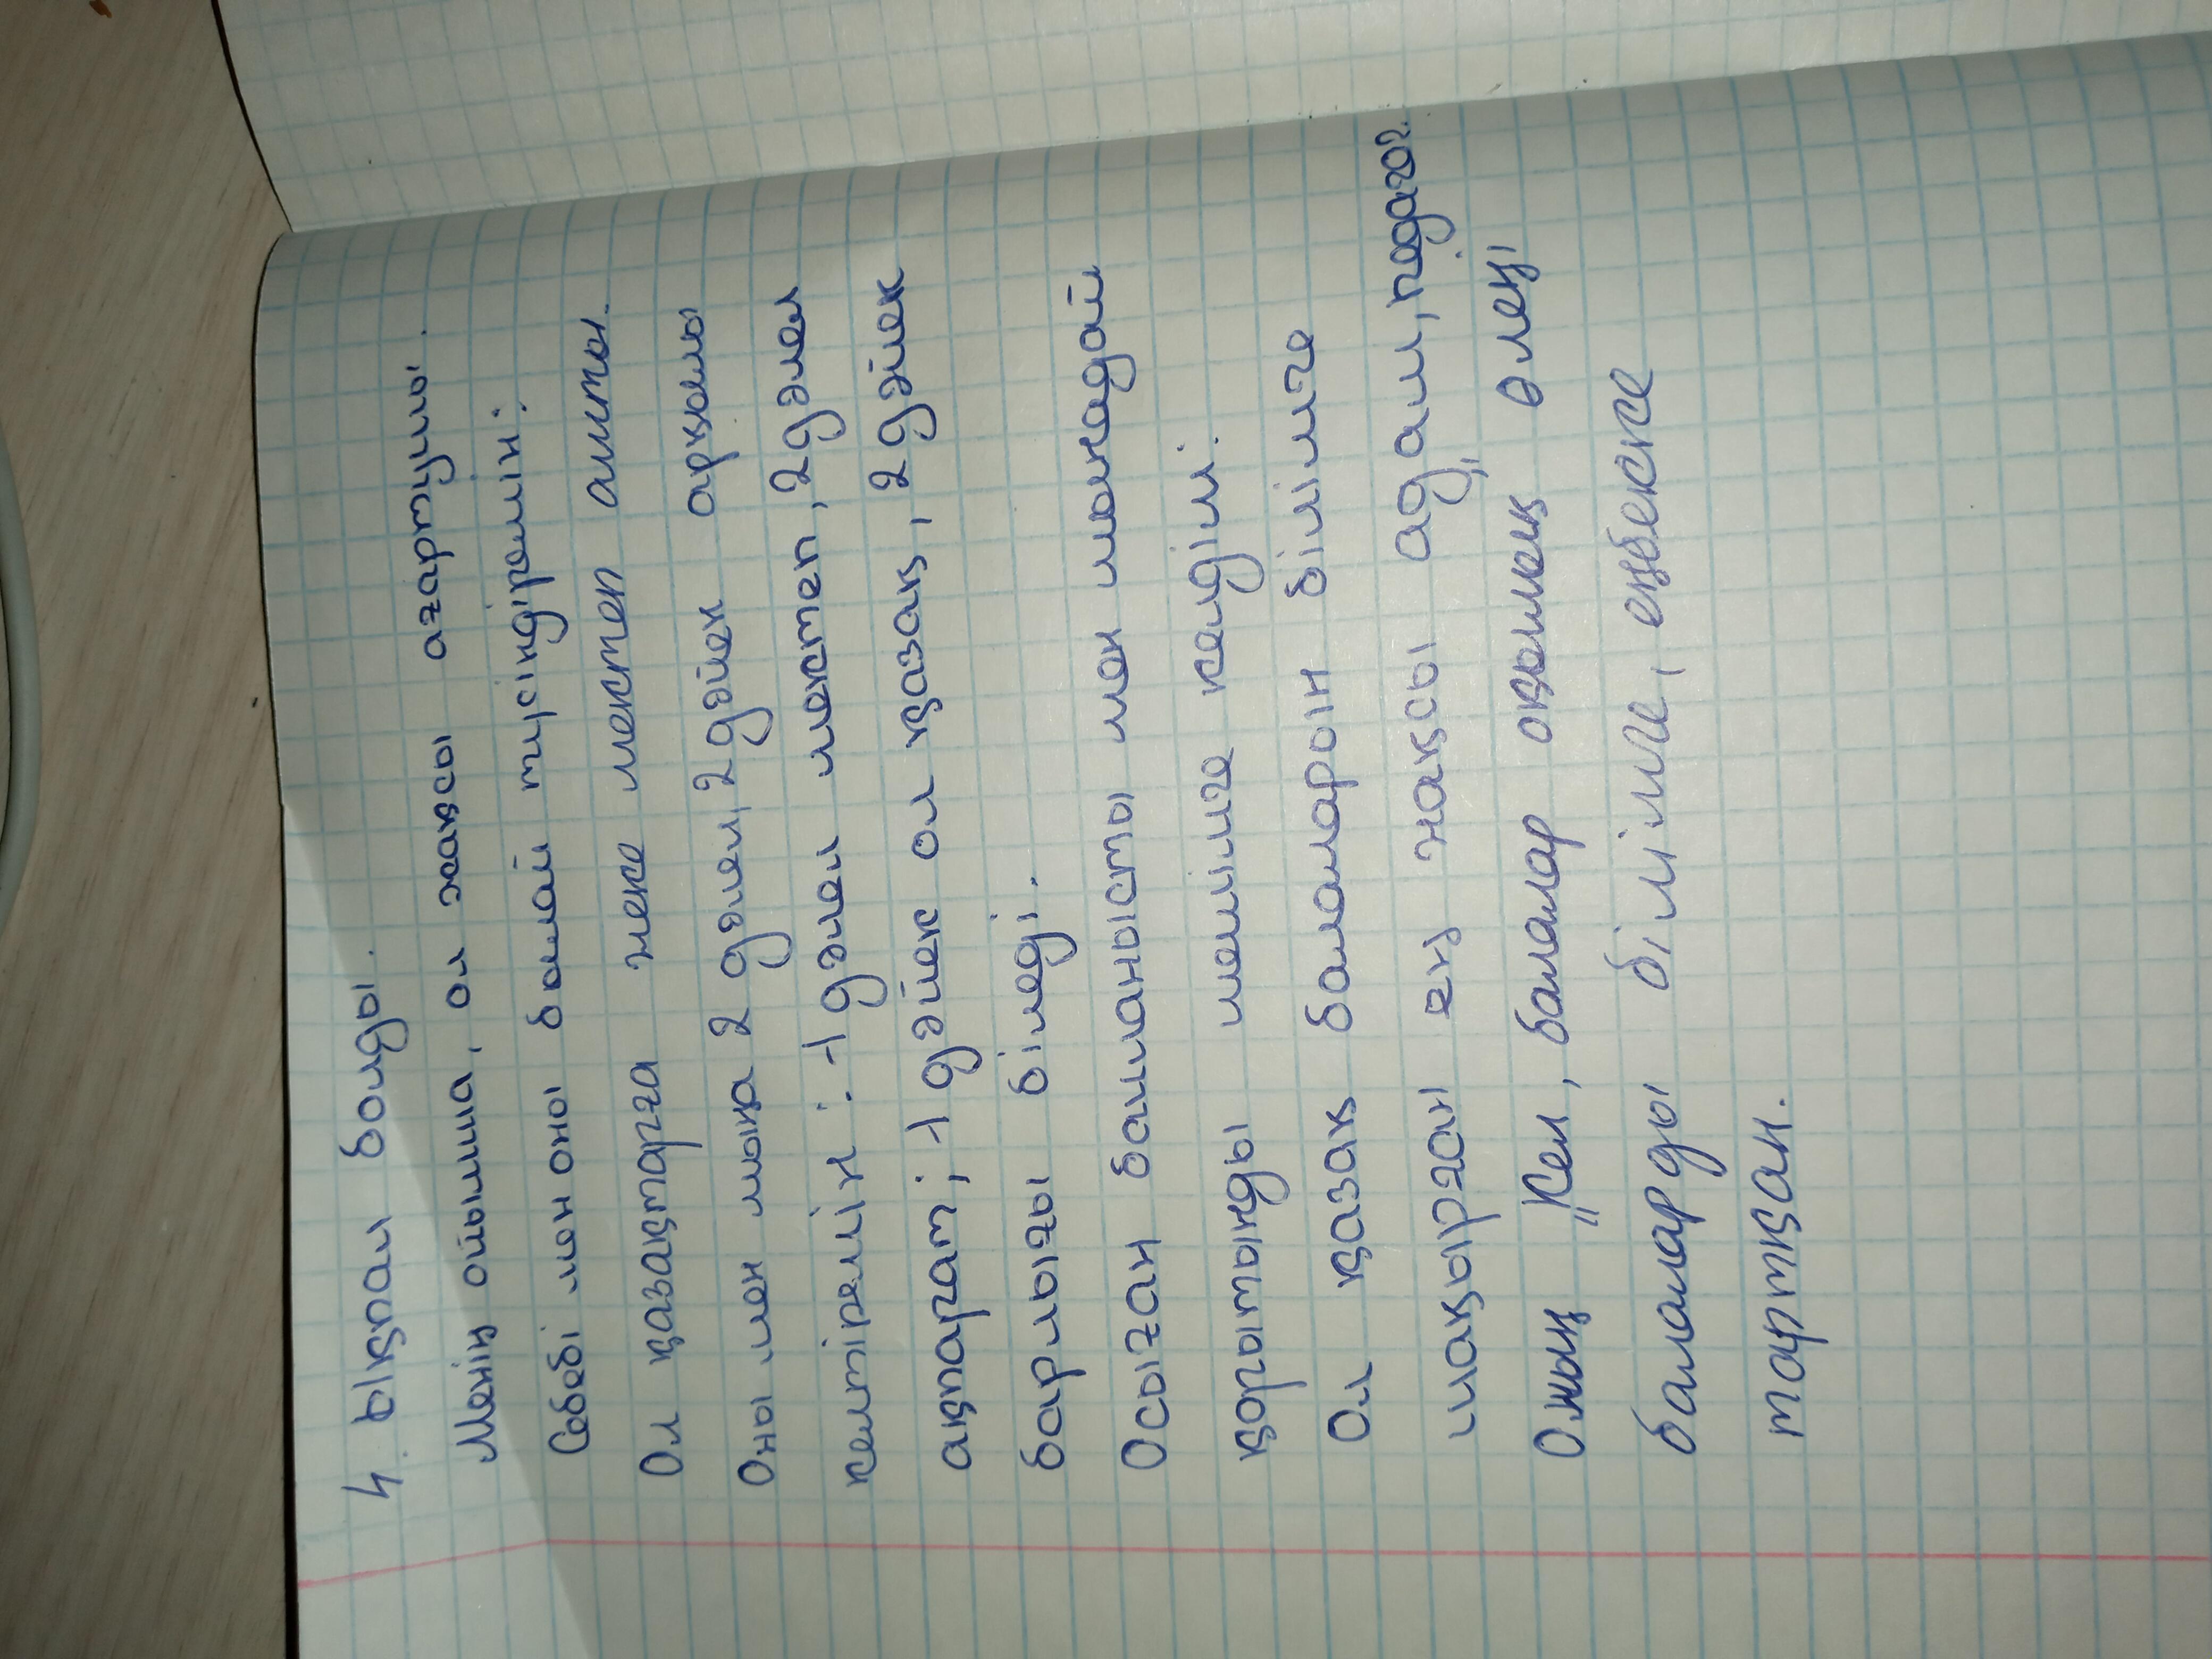 4. ықпал болды.
Менің ойымша, ол жақсы ағартушы.
Себебі мен оны былай түсіндіремін:
Ол қазақтарға жеке мектеп ашты.
Оны мен мына 2 дәлел, 2 дәйек арқылы
келтіремін: -1 дәлел мектеп, 2 дәлел
ақпарат; -1 дәйек ол қазақ, 2 дәйек
барлығы біледі.
Осыған байланысты мен мынадай
қорытынды шешімге келдім:
Ол қазақ балаларын білімге
шақырған ең жақсы адам, педагог.
Оның „Кел, балалар оқылық" өлеңі
балаларды білімге, еңбекке
тартқан.